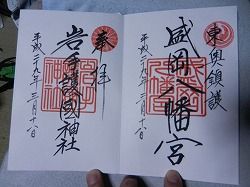 東奥鎮護
盛岡八幡宮
平成二十九年三月十八日
奉拝
岩手護國神社
平成二十九年三月十八日